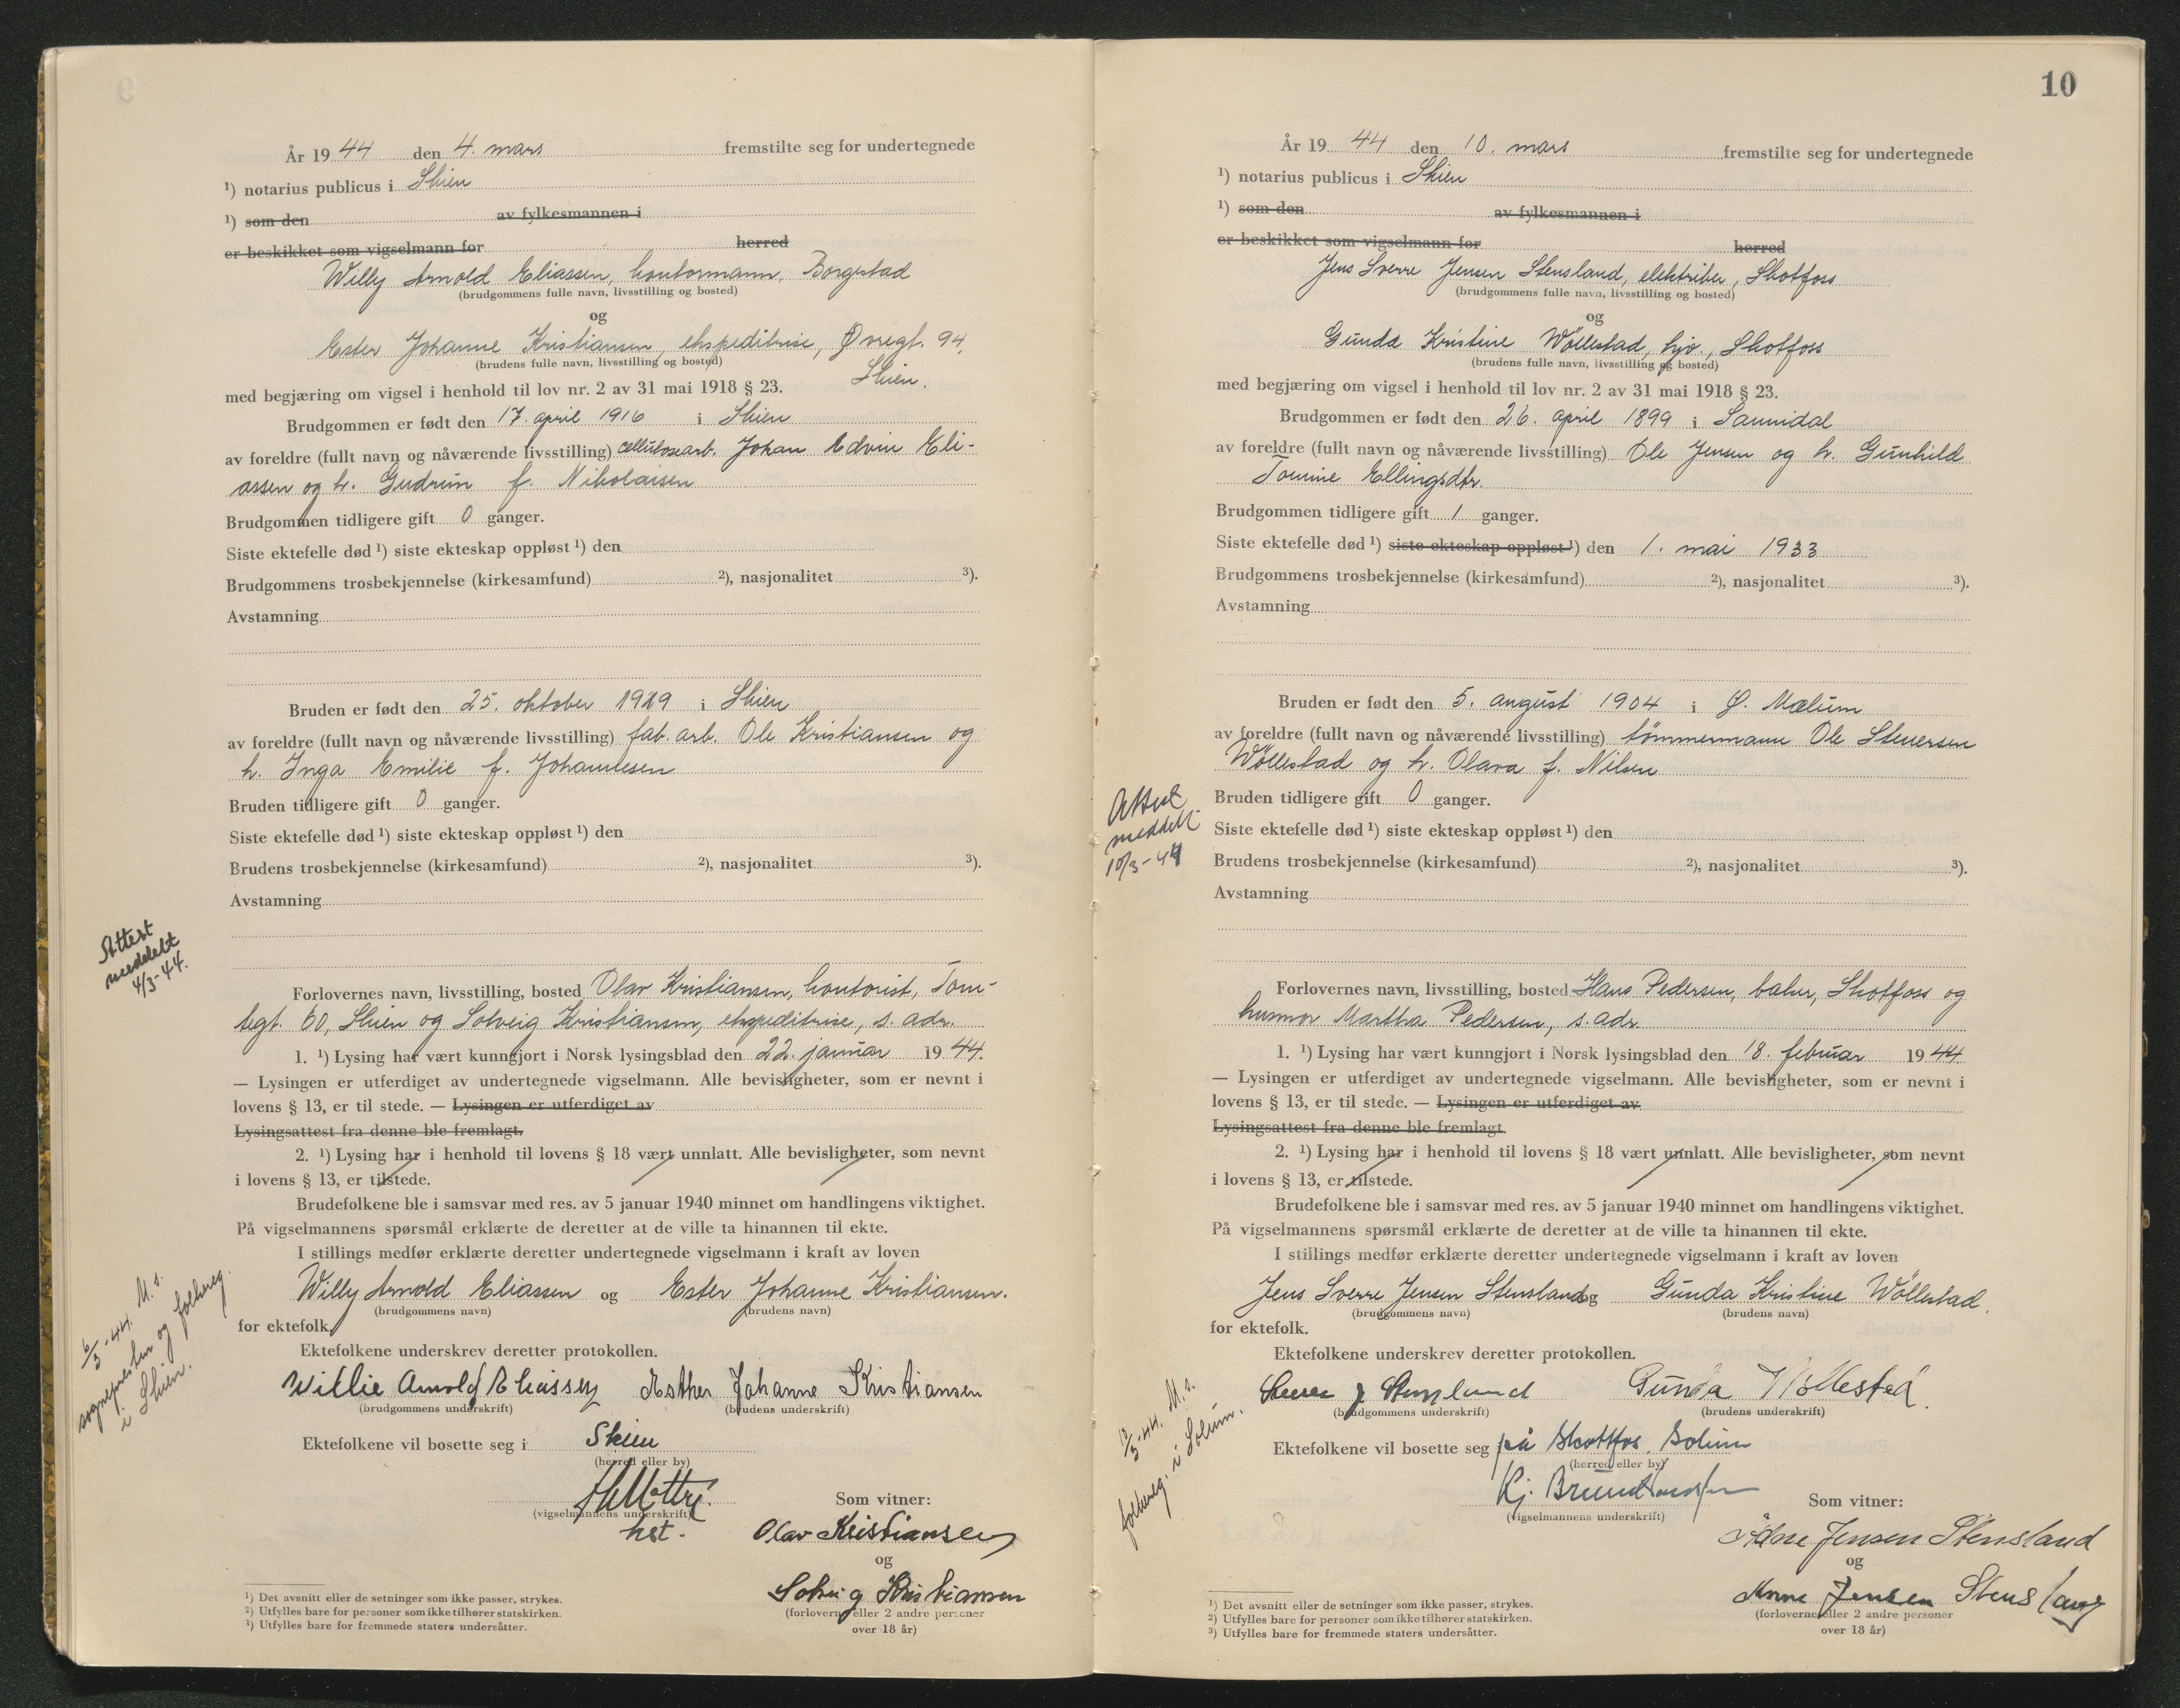 År 19 44 den 4. mars fremstilte seg for undertegnede
¹) notarius publicus i Skien
¹) som den av fylkesmannen i
er beskikket som vigselmann for herred
Willy Arnold Eliassen, kontormann, Borgestad
(brudgommens fulle navn, livsstilling og bosted)
og
Ester Johanne Kristiansen, ekspeditrise, Øvregt. 94,
(brudens fulle navn, livsstilling og bosted)
Skien.
med begjæring om vigsel i henhold til lov nr. 2 av 31 mai 1918 § 23.
Brudgommen er født den 17. april 1916 i Skien
av foreldre (fullt navn og nåværende livsstilling) cellulosearb. Johan Edvin Eli-
assen og h. Gudrun f. Nikolaisen
Brudgommen tidligere gift 0 ganger.
Siste ektefelle død ¹) siste ekteskap oppløst ¹) den
Brudgommens trosbekjennelse (kirkesamfund) ²), nasjonalitet ³).
Avstamning
Bruden er født den 25. oktober 1919 i Skien
av foreldre (fullt navn og nåværende livsstilling) fab.arb. Ole Kristiansen og
h. Inga Emilie f. Johannesen
Bruden tidligere gift 0 ganger.
Siste ektefelle død ¹) siste ekteskap oppløst ¹) den
Brudens trosbekjennelse (kirkesamfund) ²), nasjonalitet ³).
Avstamning
Attest
meddelt
4/3-44.
Forlovernes navn, livsstilling, bosted Olav Kristiansen, kontorist, Tom-
tegt. 60, Skien og Solveig Kristiansen, ekspeditrise, s. adr.
1. ¹) Lysing har vært kunngjort i Norsk lysingsblad den 22. januar 19 44.
— Lysingen er utferdiget av undertegnede vigselmann. Alle bevisligheter, som er nevnt i
lovens § 13, er til stede. — Lysingen er utferdiget av
Lysingsattest fra denne ble fremlagt.
2. ¹) Lysing har i henhold til lovens § 18 vært unnlatt. Alle bevisligheter, som nevnt
i lovens § 13, er tilstede.
Brudefolkene ble i samsvar med res. av 5 januar 1940 minnet om handlingens viktighet.
På vigselmannens spørsmål erklærte de deretter at de ville ta hinannen til ekte.
I stillings medfør erklærte deretter undertegnede vigselmann i kraft av loven
Willy Arnold Eliassen og Ester Johanne Kristiansen.
(brudgommens navn) (brudens navn)
for ektefolk.
6/3-44. M.s.
sognepresten og folkereg.
i Skien.
Ektefolkene underskrev deretter protokollen.
Willie Arnold Eliassen Esther Johanne Kristiansen
(brudgommens underskrift) (brudens underskrift)
Ektefolkene vil bosette seg i Skien
(herred eller by)
(vigselmannens underskrift)
hst.
Som vitner:
Olav Kristiansen
og
Solveig Kristiansen
(forloverne eller 2 andre personer
over 18 år)
¹) Det avsnitt eller de setninger som ikke passer, strykes.
²) Utfylles bare for personer som ikke tilhører statskirken.
³) Utfylles bare for fremmede staters undersåtter.
10
År 19 44 den 10. mars fremstilte seg for undertegnede
¹) notarius publicus i Skien
¹) som den av fylkesmannen i
er beskikket som vigselmann for herred
Jens Sverre Jensen Stensland, elektriker, Skotfoss
(brudgommens fulle navn, livsstilling og bosted)
og
Gunda Kristine Wøllestad, hjv., Skotfoss
(brudens fulle navn, livsstilling og bosted)
med begjæring om vigsel i henhold til lov nr. 2 av 31 mai 1918 § 23.
Brudgommen er født den 26. april 1899 i Sannidal
av foreldre (fullt navn og nåværende livsstilling) Ole Jensen og h. Gunhild
Tomine Ellingsdtr.
Brudgommen tidligere gift 1 ganger.
Siste ektefelle død ¹) siste ekteskap oppløst ¹) den 1. mai 1933
Brudgommens trosbekjennelse (kirkesamfund) ²), nasjonalitet ³).
Avstamning
Bruden er født den 5. august 1904 i Ø. Mælum
av foreldre (fullt navn og nåværende livsstilling) tømmermann Ole Stenersen
Wøllestad og h. Olava f. Nilsen
Attest
meddelt
10/3-44
Bruden tidligere gift 0 ganger.
Siste ektefelle død ¹) siste ekteskap oppløst ¹) den
Brudens trosbekjennelse (kirkesamfund) ²), nasjonalitet ³).
Avstamning
Forlovernes navn, livsstilling, bosted Hans Pedersen, baker, Skotfoss og
husmor Martha Pedersen, s. adr.
1. ¹) Lysing har vært kunngjort i Norsk lysingsblad den 18. februar 19 44.
— Lysingen er utferdiget av undertegnede vigselmann. Alle bevisligheter, som er nevnt i
lovens § 13, er til stede. — Lysingen er utferdiget av
Lysingsattest fra denne ble fremlagt.
2. ¹) Lysing har i henhold til lovens § 18 vært unnlatt. Alle bevisligheter, som nevnt
i lovens § 13, er tilstede.
Brudefolkene ble i samsvar med res. av 5 januar 1940 minnet om handlingens viktighet.
På vigselmannens spørsmål erklærte de deretter at de ville ta hinannen til ekte.
I stillings medfør erklærte deretter undertegnede vigselmann i kraft av loven
Jens Sverre Jensen Stensland og Gunda Kristine Wøllestad.
(brudgommens navn) (brudens navn)
for ektefolk.
M.s.
folkereg. i Solum.
Ektefolkene underskrev deretter protokollen.
Sverre J Stensland Gunda Wøllestad.
(brudgommens underskrift) (brudens underskrift)
Ektefolkene vil bosette seg på Skotfos. Solum
(herred eller by)
Kj.
(vigselmannens underskrift)
Som vitner:
Jensen Stensland
og
Anne Jensen Stensland
(forloverne eller 2 andre personer
over 18 år)
¹) Det avsnitt eller de setninger som ikke passer, strykes.
²) Utfylles bare for personer som ikke tilhører statskirken.
³) Utfylles bare for fremmede staters undersåtter.